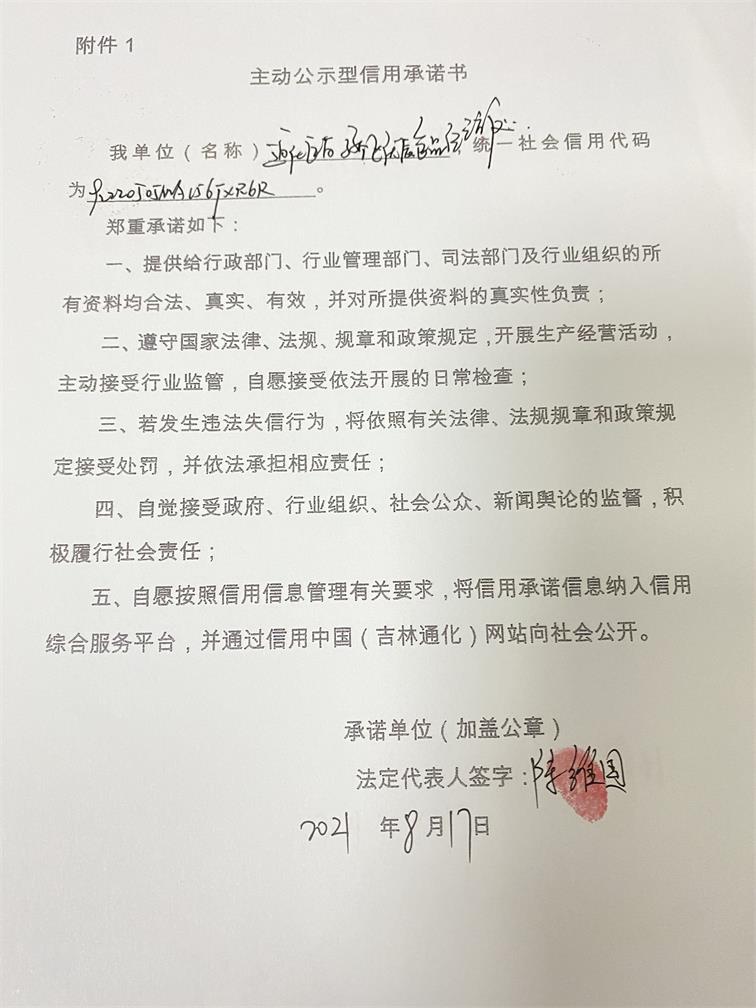 附件 1
主动公示型信用承诺书
我单位（名称） 食品经 统一社会信用代码
为 。
郑重承诺如下：
一、提供给行政部门、行业管理部门、司法部门及行业组织的所
有资料均合法、真实、有效，并对所提供资料的真实性负责；
二、遵守国家法律、法规、规章和政策规定，开展生产经营活动，
主动接受行业监管，自愿接受依法开展的日常检查；
三、若发生违法失信行为，将依照有关法律、法规规章和政策规
定接受处罚，并依法承担相应责任；
四、自觉接受政府、行业组织、社会公众、新闻舆论的监督，积
极履行社会责任；
五、自愿按照信用信息管理有关要求，将信用承诺信息纳入信用
综合服务平台，并通过信用中国（吉林通化）网站向社会公开。
承诺单位（加盖公章）
法定代表人签字：陈维国
2021 年 8 月 17 日